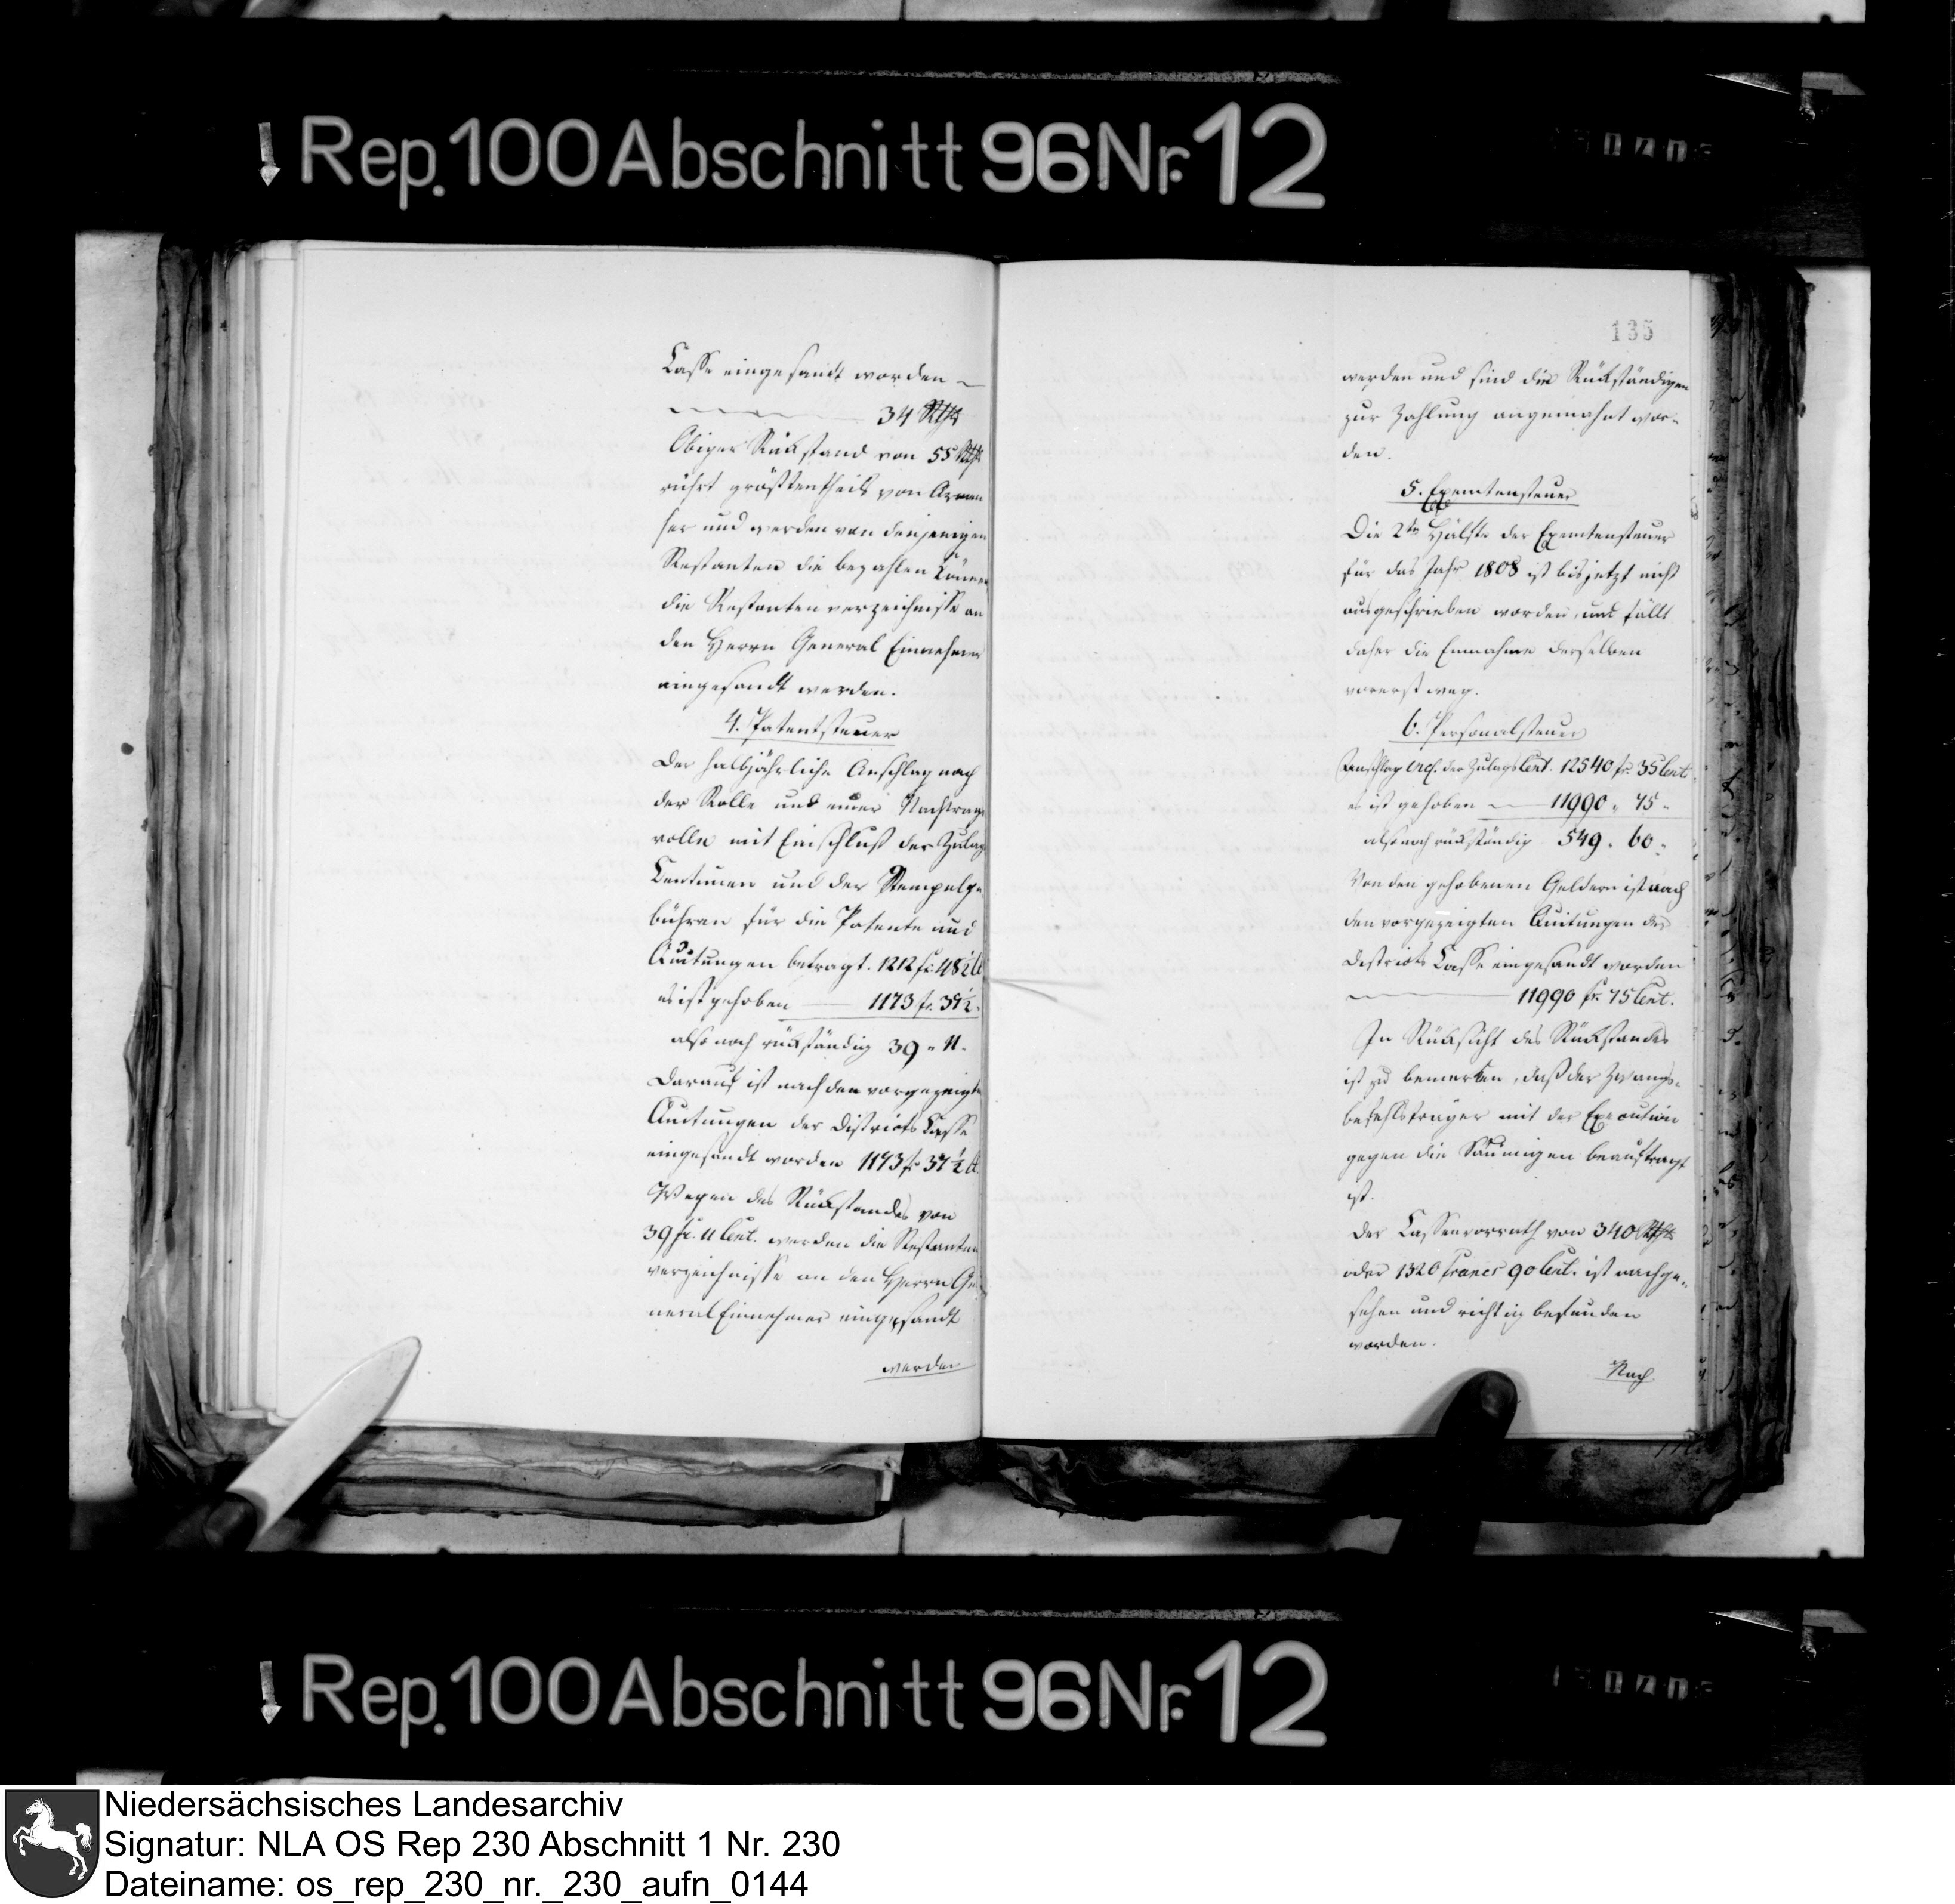 Rep. 100 Abschnitt 96 Nr. 12
Casse eingesandt worden
34 Rthlr
Obiger Rükstand von 55 Rthlr
rührt größtentheils von Armen
her und werden von denjenigen
Restanten die bezahlen können
die Restantenverzeichnisse an
den Herrn General Einnehmer
eingesandt werden.
4. Patentsteuer
Der halbjährliche Anschlag nach
der Rolle und einer Nachtrags
rolle mit Einschluß der Zulag
Centimen und der Stempelge
bühren für die Patente und
Quitungen betragt. 1212 fr. 48½ Ct
es ist gehoben 1173 fr. 37½
also noch rükständig 39 " 11 "
Darauf ist nach den vorgezeigten
Quitungen der Districts Casse
eingesandt worden 1173 fr 37½ Ct.
Wegen des Rükstandes von
39 fr. 11 Cent. werden die Restanten
verzeichnisse an den Herrn Ge
neral Einnehmer eingesandt
werden
135
werden und sind die Rükständigen
zur Zahlung angemahnt wor-
den.
5. Exemtensteuer
Die 2te Hälfte der Exemtensteuer
für das Jahr 1808 ist bis jetzt nicht
ausgeschrieben worden, und fällt
daher die Einnahme derselben
vorerst weg.
6. Personalsteuer
Anschlag incl. der Zulags Cent. 12540 fr. 35 Cent
es ist gehoben 11990 " 75 "
also noch rükständig 549 " 60 "
Von den gehobenen Geldern ist nach
den vorgezeigten Quitungen der
Districts Casse eingesandt worden
11990 fr. 75 Cent.
In Rüksicht des Rükstandes
ist zu bemerken, daß der Zwangs-
befehlsträger mit der Execution
gegen die Säumigen beauftragt
ist.
Der Cassenvorrath von 340 Rthlr
oder 1320 francs 90 Cent. ist nachge-
sehen und richtig befunden
worden.
Nach
Rep. 100 Abschnitt 96 Nr. 12
Niedersächsisches Landesarchiv
Signatur: NLA OS Rep 230 Abschnitt 1 Nr. 230
Dateiname: os_rep_230_nr._230_aufn_0144